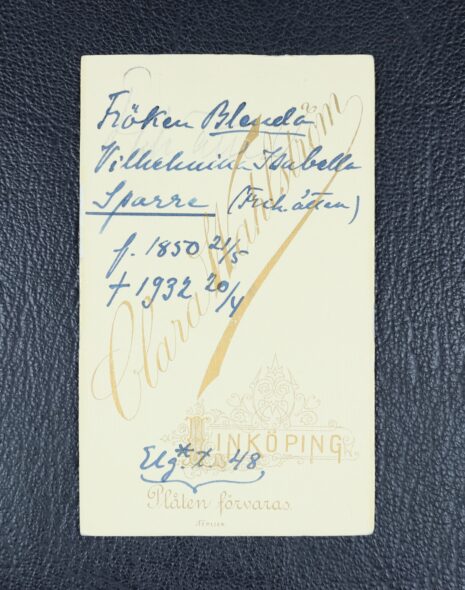 Fröken Blenda
Vilhelmina Isabella
Sparre (Frih. ätten)
f. 1850 21/5
† 1932 20/4
Clara
LINKÖPING
Elg. 48
Plåten förvaras.